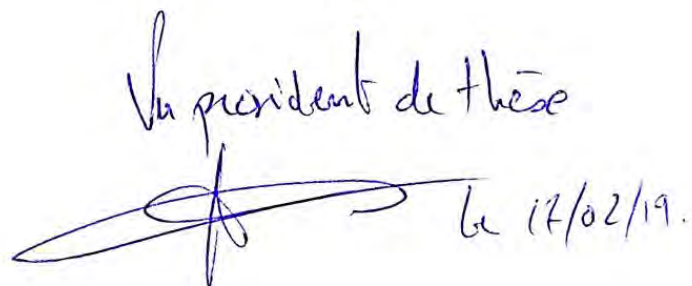 Vu président de thèse
le 17/02/19.